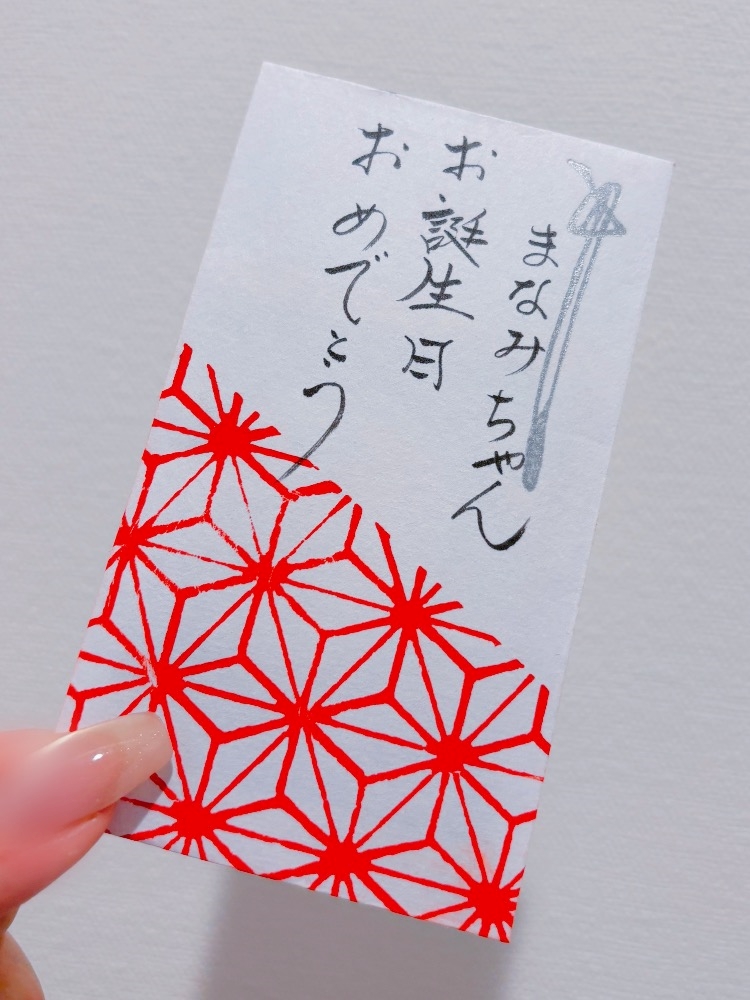 まなみちゃん
お誕生日
おめでとう